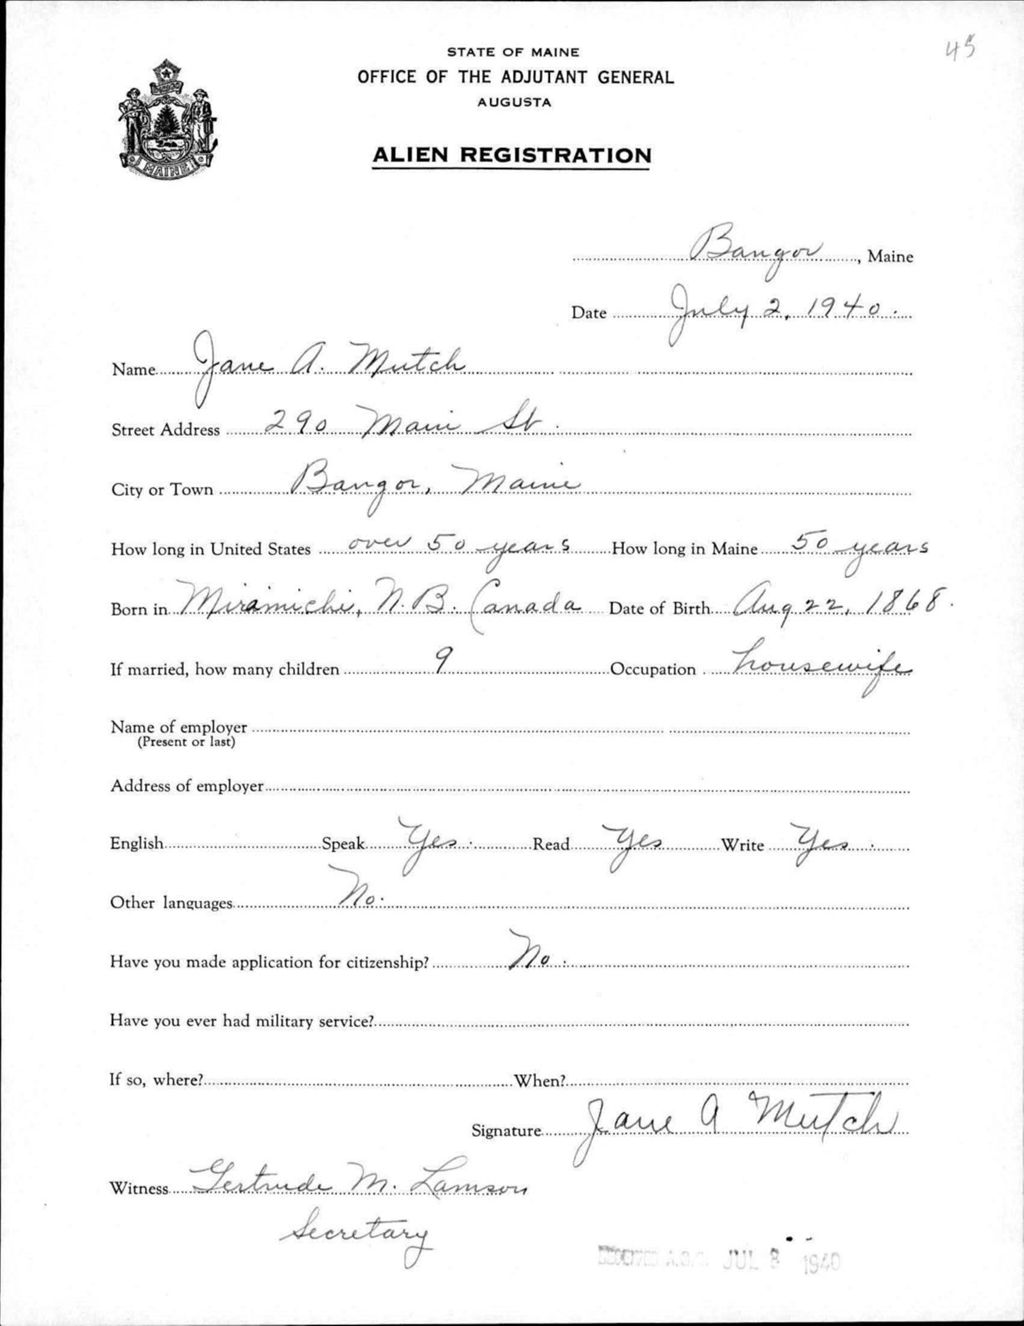 45
STATE OF MAINE
OFFICE OF THE ADJUTANT GENERAL
AUGUSTA
ALIEN REGISTRATION
MAINE
Bangor, Maine
Date July 2, 1940.
Name Jane A. Mutch
Street Address 290 Main St.
City or Town Bangor, Maine
How long in United States over 50 years How long in Maine 50 years
Born in Miramichi, N.B. Canada Date of Birth Aug 22, 1868.
If married, how many children 9 Occupation housewife
Name of employer
(Present or last)
Address of employer
English Speak Yes. Read Yes Write Yes.
Other languages No.
Have you made application for citizenship? No.
Have you ever had military service?
If so, where? When?
Signature Jane A Mutch
Witness Gertrude M. Lamson
Secretary
RECEIVED A.G.O. JUL 8 1940